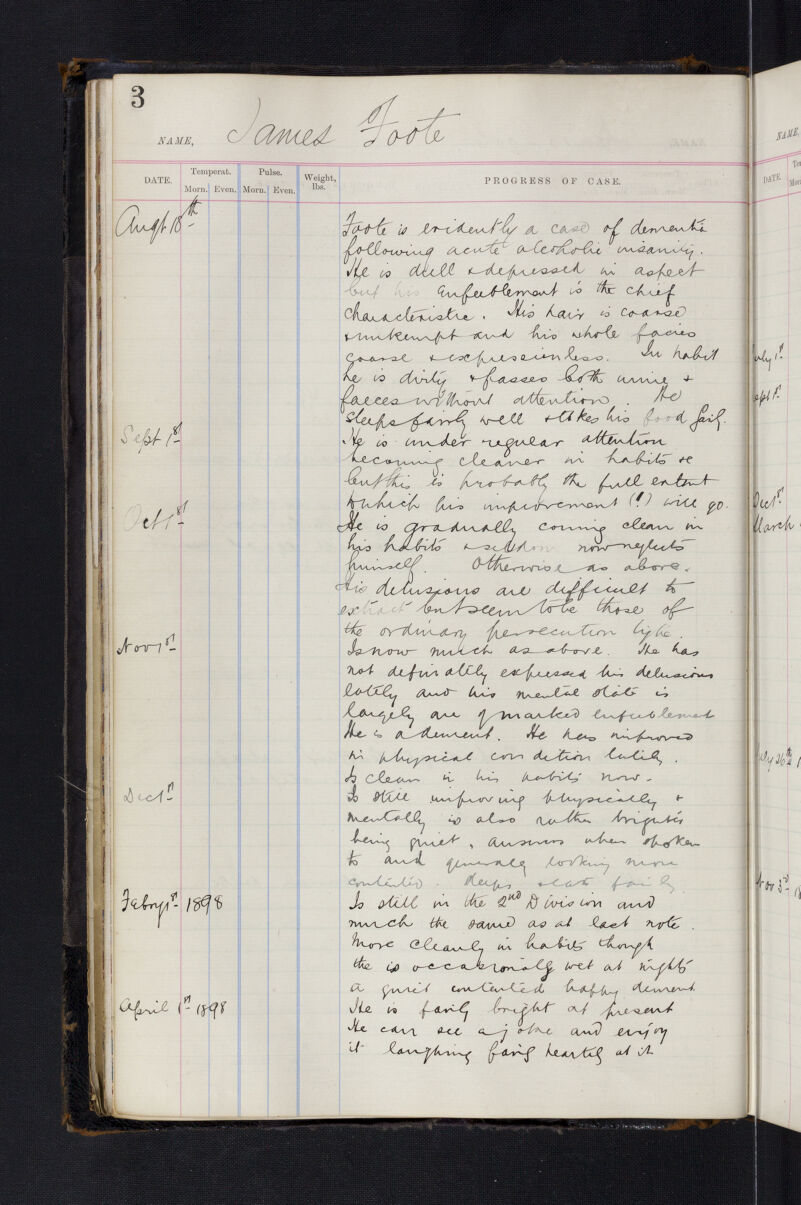 3
NAME, James Foote
DATE. Temperat. Pulse. Weight, lbs. PROGRESS OF CASE.
Morn. Even. Morn. Even.
Augt 18th Foote is evidently a case of dementia
following acute alcoholic insanity.
He is dull & depressed in aspect
but his enfeeblement is the chief
characteristic. His hair is coarse
& unkempt and his whole facies
coarse & expressionless. In habit
he is dirty & passes both urine &
faeces without attention. He
sleeps fairly well & takes his food fairly.
Sept 1st He is under regular attention
becoming cleaner in habits &c
but this is probably the full extent
to which his improvement (!) will go.
Oct 1st He is gradually coming clean in
his habits & seldom now neglects
himself. Otherwise as above.
His delusions are difficult to
extract but seem to be those of
the ordinary persecution type.
Nov 1st Is now much as above. He has
not definately expressed his delusions
lately and his mental state is
largely one of marked enfeeblement
He is a dement. He has improved
in physical condition lately.
Is clean in his habits now.
Dec 1st Is still improving physically &
mentally is also rather brighter
being quiet, answers when spoken
to and generally looking more
contented. Sleeps & eats fairly.
Febry 1st 1898 Is still in the 2nd Division and
much the same as at last note.
More cleanly in habits though
he is occasionally wet at nights
a quiet contented happy dement
April 1st 1898 He is fairly bright at present
He can see a joke and enjoy
it laughing fairly heartily at it
NAME,
DATE.
July 1st
Sept 1st
Dec 1st
March
July 26th
Nov 3rd